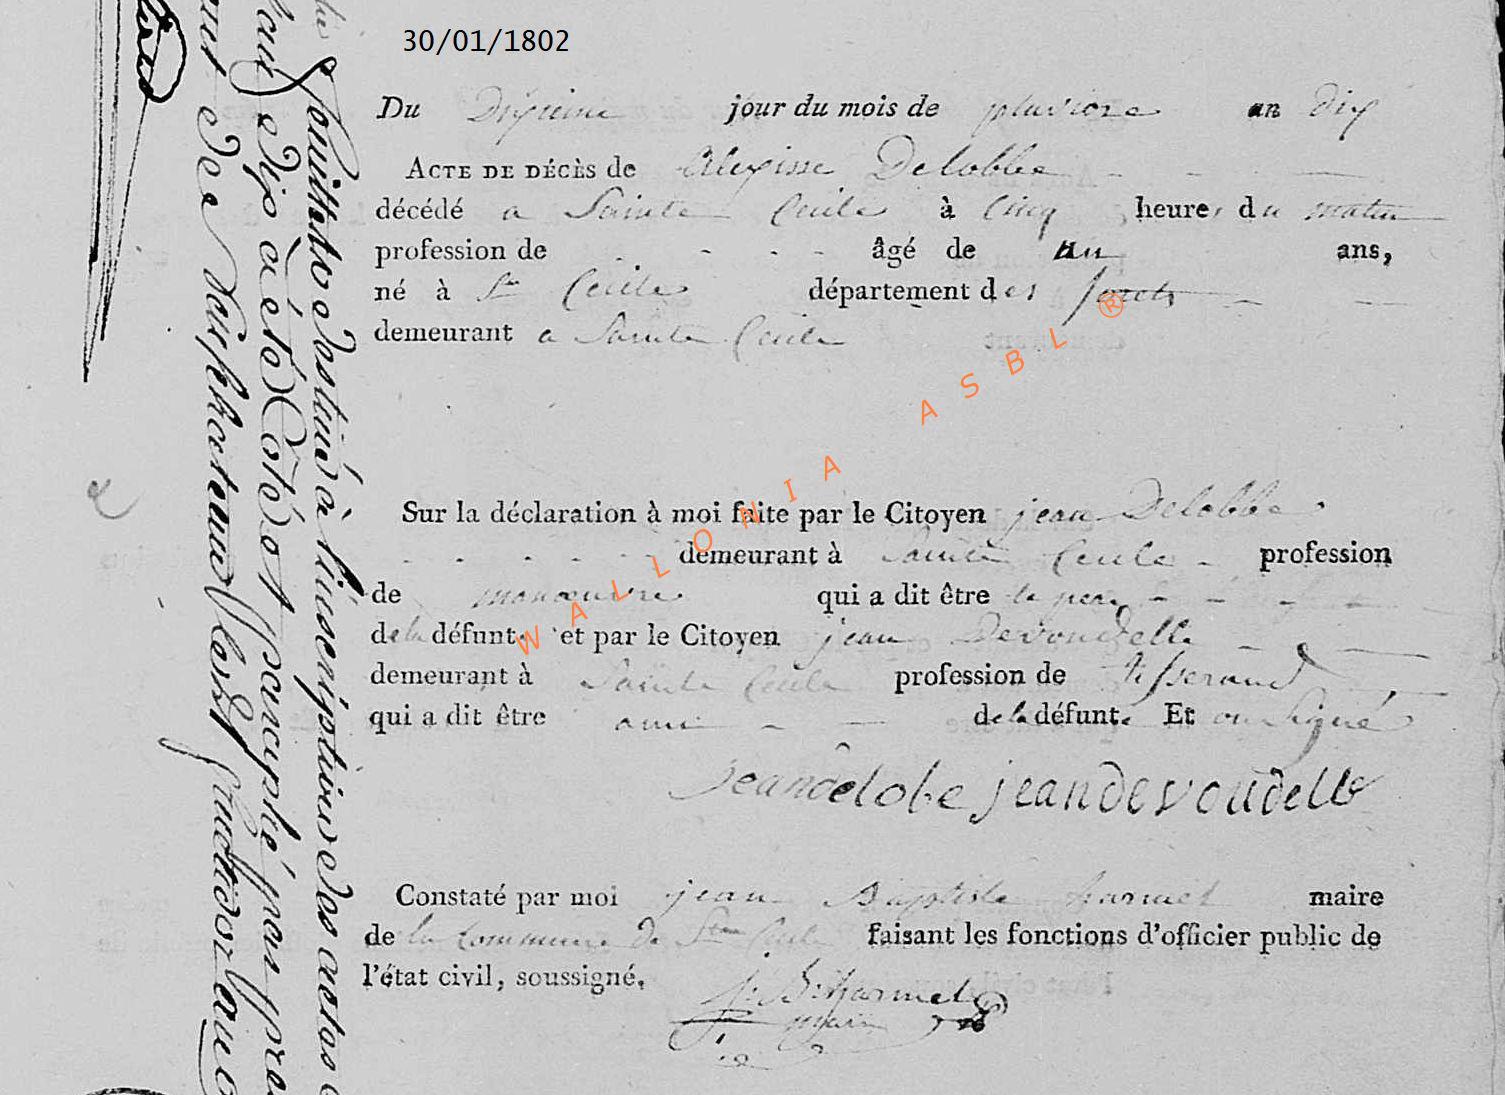 30/01/1802
Du Dixieme jour du mois de pluviose an dix
ACTE DE DÉCÈS de Alexisse Delobbe
décédé a Sainte Cecile à Cinq heures du matin
profession de - - - âgé de un ans,
né à Ste Cecile département des forets
demeurant a Sainte Cecile
Sur la déclaration à moi faite par le Citoyen jean Delobbe
demeurant à Sainte Cecile profession
de manoeuvre qui a dit être le pere
de la défunte et par le Citoyen jean Devoudelle
demeurant à Sainte Cecile profession de tisserand
qui a dit être ami de la défunte Et ont Signé
jean delobe jean devoudelle
Constaté par moi jean Baptiste harmel maire
de la Commune de Ste Cecile faisant les fonctions d'officier public de
l'état civil, soussigné.
J: B: Harmel
maire
WALLONIA ASBL ®
feuillets destiné à l'inscription des actes
an dix a été Coté et paraphé par